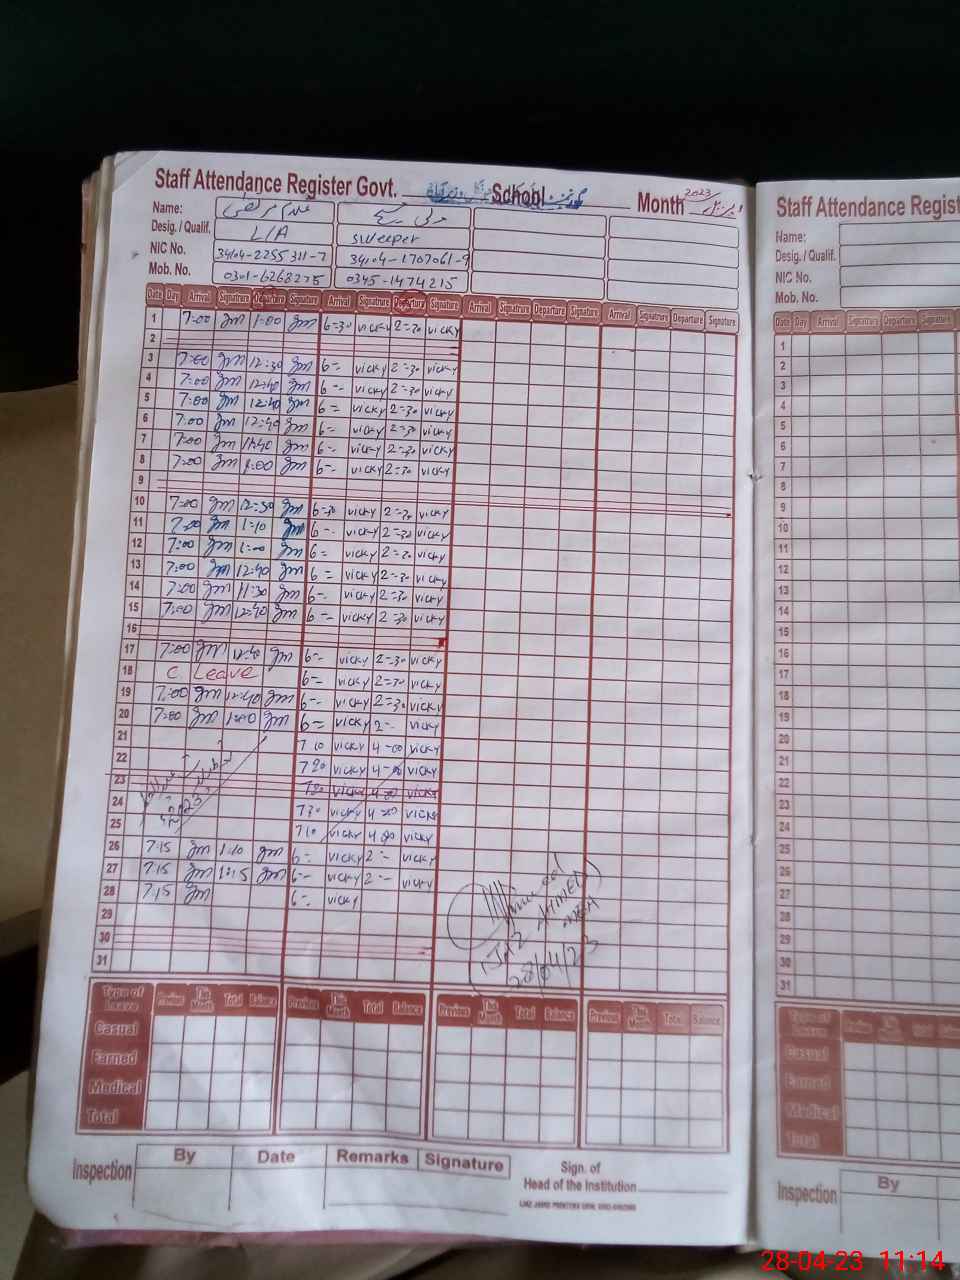 Staff Attendance Register Govt. School Month اپریل 2023
Name: غلام مرتضی
Desig. / Qualif. L/A sweeper
NIC No. 34104-2255311-7 34104-1707061-9
Mob. No. 0301-6268275 0345-1474215
Date Day Arrival Signature Departure Signature Arrival Signature Departure Signature Arrival Signature Departure Signature Arrival Signature Departure Signature
1 7:00 gm 1:00 gm 6=30 vicky 2=30 vicky
2
3 7:00 gm 12:30 gm 6=- vicky 2=30 vicky
4 7:00 gm 12:40 gm 6=- vicky 2=30 vicky
5 7:00 gm 12:40 gm 6= vicky 2=30 vicky
6 7:00 gm 12:40 gm 6=- vicky 2=30 vicky
7 7:00 gm gm 6=- vicky 2=30 vicky
8 7:00 gm gm 6=- vicky 2=30 vicky
9
10 7:00 gm 12:30 gm 6=30 vicky 2=30 vicky
11 7:00 gm 1:10 gm 6=- vicky 2=30 vicky
12 7:00 gm 1:00 gm 6= vicky 2=30 vicky
13 7:00 gm 12:40 gm 6= vicky 2=30 vicky
14 7:00 gm 11:30 gm 6=- vicky 2=30 vicky
15 7:00 gm 12:40 gm 6=- vicky 2=30 vicky
16
17 7:00 gm 12:40 gm 6=- vicky 2=30 vicky
18 C. Leave 6=- vicky 2=30 vicky
19 7:00 gm 12:40 gm 6=- vicky 2=30 vicky
20 7:00 gm 1:00 gm 6= vicky 2=- vicky
21 7 10 vicky 4-00 vicky
22 7 20 vicky 4-00 vicky
23 vicky 4-00 vicky
24 7 30 vicky 4-00 vicky
25 7 10 vicky 4 00 vicky
26 7:15 gm 1:10 gm 6=- vicky 2=- vicky
27 7:15 gm 1:15 gm 6=- vicky 2=- vicky
28 7:15 gm 6=- vicky
29
30
31
AHMED
28/04/23
Type of Leave Previous This Month Total Balance Previous This Month Total Balance Previous This Month Total Balance Previous This Month Total Balance
Casual
Earned
Medical
Total
Inspection By Date Remarks Signature
Sign. of
Head of the Institution
Staff Attendance Regist
Name:
Desig. / Qualif.
NIC No.
Mob. No.
Date Day Arrival Signature Departure Signature
1
2
3
4
5
6
7
8
9
10
11
12
13
14
15
16
17
18
19
20
21
22
23
24
25
26
27
28
29
30
31
Type of Leave
Casual
Earned
Medical
Total
Inspection By
28-04-23 11:14